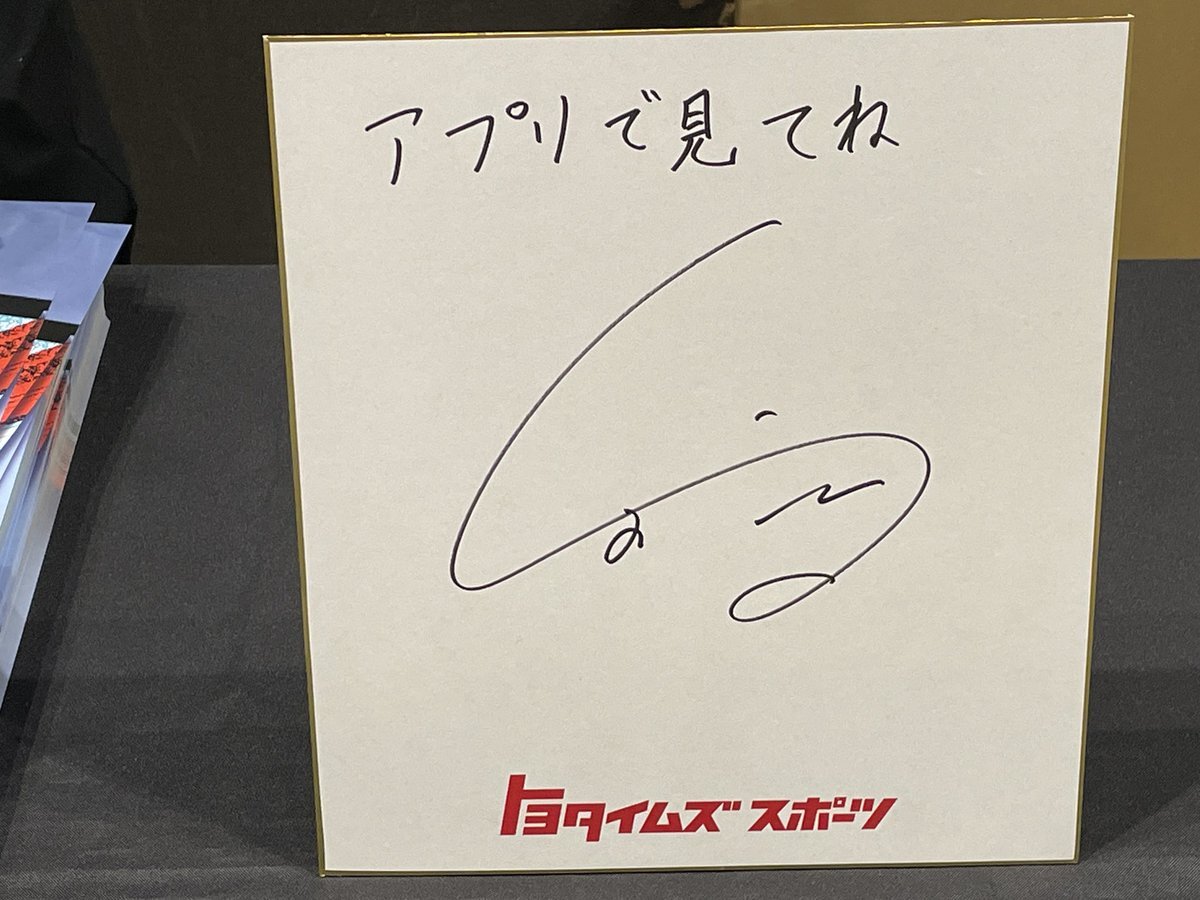 アプリで見てね
トヨタイムズスポーツ